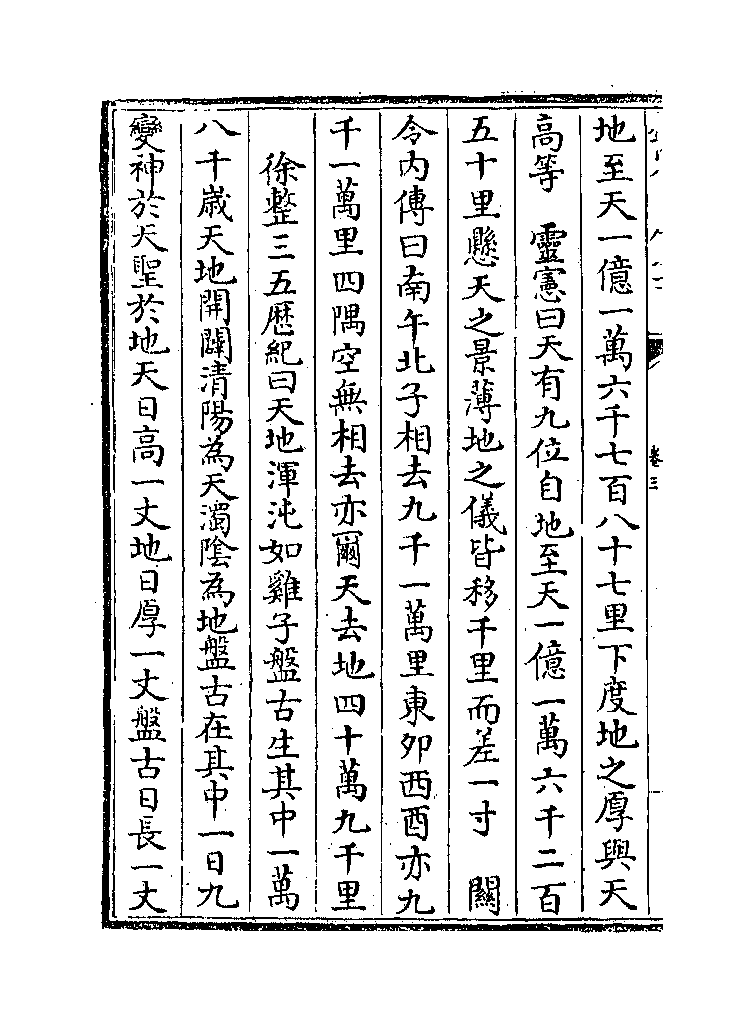 地至天一億一萬六千七百八十七里下度地之厚與天
高等　靈憲曰天有九位自地至天一億一萬六千二百
五十里懸天之景薄地之儀皆移千里而差一寸　關
令內傳曰南午北子相去九千一萬里東夘西酉亦九
千一萬里四隅空無相去亦爾天去地四十萬九千里
徐整三五厯紀曰天地渾沌如雞子盤古生其中一萬
八千歲天地開闢清陽為天濁陰為地盤古在其中一日九
變神於天聖於地天日高一丈地日厚一丈盤古日長一丈
卷三